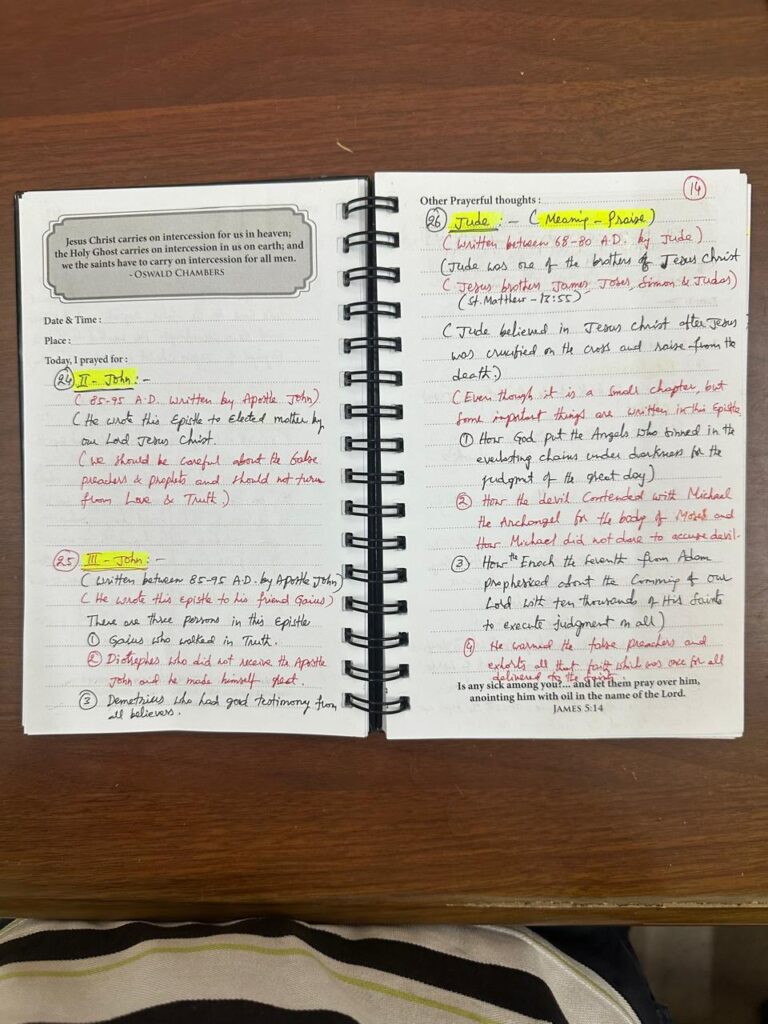 Jesus Christ carries on intercession for us in heaven;
the Holy Ghost carries on intercession in us on earth; and
we the saints have to carry on intercession for all men.
- OSWALD CHAMBERS
Date & Time :
Place :
Today, I prayed for :
24 II - John :-
( 85-95 A.D. written by Apostle John)
( He wrote this Epistle to Elected mother by
our Lord Jesus Christ.
( we should be careful about the false
preachers & prophets and should not turn
from Love & Truth.)
25 III - John :-
( Written between 85-95 A.D. by Apostle John)
( He wrote this epistle to his friend Gaius)
There are three persons in this Epistle
1 Gaius who walked in Truth.
2 Diotrephes who did not receive the Apostle
John and he made himself great.
3 Demetrius who had good testimony from
all believers.
14
Other Prayerful thoughts :
26 Jude :- ( Meaning - Praise)
( Written between 68-80 A.D. by Jude)
(Jude was one of the brothers of Jesus Christ
( Jesus brothers James, Joses, Simon & Judas)
(St. Matthew - 13:55)
( Jude believed in Jesus Christ after Jesus
was crucified on the cross and raise from the
death.)
(Even though it is a small chapter, but
Some important things are written in this Epistle
1 How God put the Angels who sinned in the
everlasting chains under darkness for the
judgmt of the great day)
2 How the devil Contended with Michael
the Archangel for the body of Moses and
How Michael did not dare to accuse devil.
3 How the Enoch the Seventh from Adam
prophesied about the Comming of our
Lord with ten thousands of His Saints
to execute judgment on all)
4 He warned the false preachers and
exhorts all that faith which was once for all
delivered to the saints.
Is any sick among you?... and let them pray over him,
anointing him with oil in the name of the Lord.
JAMES 5:14